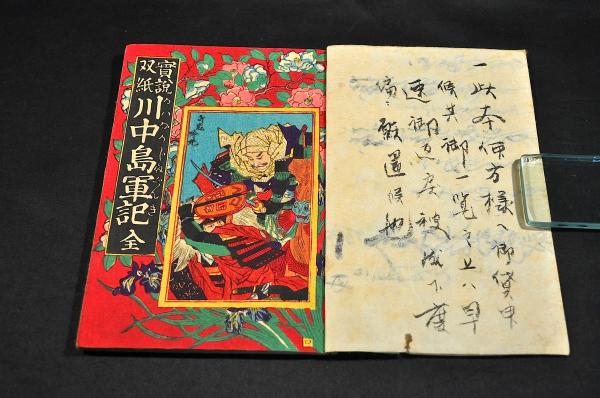 實說
双紙
川中島軍記 全
一此本何方様へ御貸申
候共御一覧之上ハ早
速御返戻被成下度
偏ニ願置候也